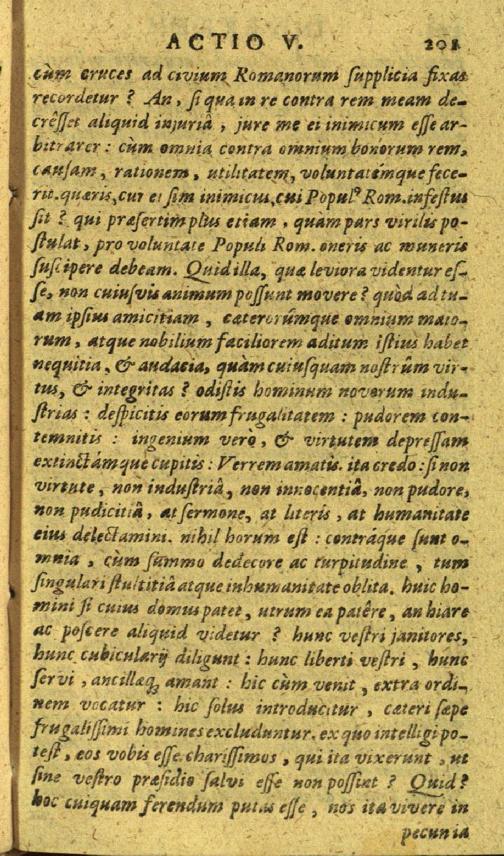 ACTIO V. 201
cùm cruces ad civium Romanorum ſupplicia fixas
recordetur ? An, ſi qua in re contra rem meam de-
crêſſet aliquid injuriâ, jure me ei inimicum eſſe ar-
bitrarer : cùm omnia contra omnium bonorum rem,
cauſam, rationem, utilitatem, voluntatémque fece-
rit. quæris, cur ei ſim inimicus, cui Popul⁹ Rom. infeſtus
ſit ? qui præſertim plus etiam, quàm pars virilis po-
ſtulat, pro voluntate Populi Rom. oneris ac muneris
ſuſcipere debeam. Quid illa, quæ leviora videntur eſ-
ſe, non cuiuſvis animum poſſunt movere ? quòd ad tu-
am ipſius amicitiam, cæterorúmque omnium maio-
rum, atque nobilium faciliorem aditum iſtius habet
nequitia, & audacia, quàm cuiuſquam noſtrûm vir-
tus, & integritas ? odiſtis hominum novorum indu-
ſtrias : deſpicitis eorum frugalitatem : pudorem con-
temnitis : ingenium verò, & virtutem depreſſam
extinctámque cupitis : Verrem amatis. ita credo : ſi non
virtute, non induſtriâ, non innocentiâ, non pudore,
non pudicitiâ, at ſermone, at literis, at humanitate
eius delectamini. nihil horum eſt : contráque ſunt o-
mnia, cùm ſummo dedecore ac turpitudine, tum
ſingulari ſtultitiâ atque inhumanitate oblita. huic ho-
mini ſi cuius domus patet, utrum ea patêre, an hiare
ac poſcere aliquid videtur ? hunc veſtri janitores,
hunc cubicularij diligunt : hunc liberti veſtri, hunc
ſervi, ancillæq; amant : hic cùm venit, extra ordi-
nem vocatur : hic ſolus introducitur, cæteri ſæpe
frugaliſſimi homines excluduntur. ex quo intelligi po-
teſt, eos vobis eſſe chariſſimos, qui ita vixerunt, ut
ſine veſtro præſidio ſalvi eſſe non poſſint ? Quid ?
hoc cuiquam ferendum putas eſſe, nos ita vivere in
pecunia